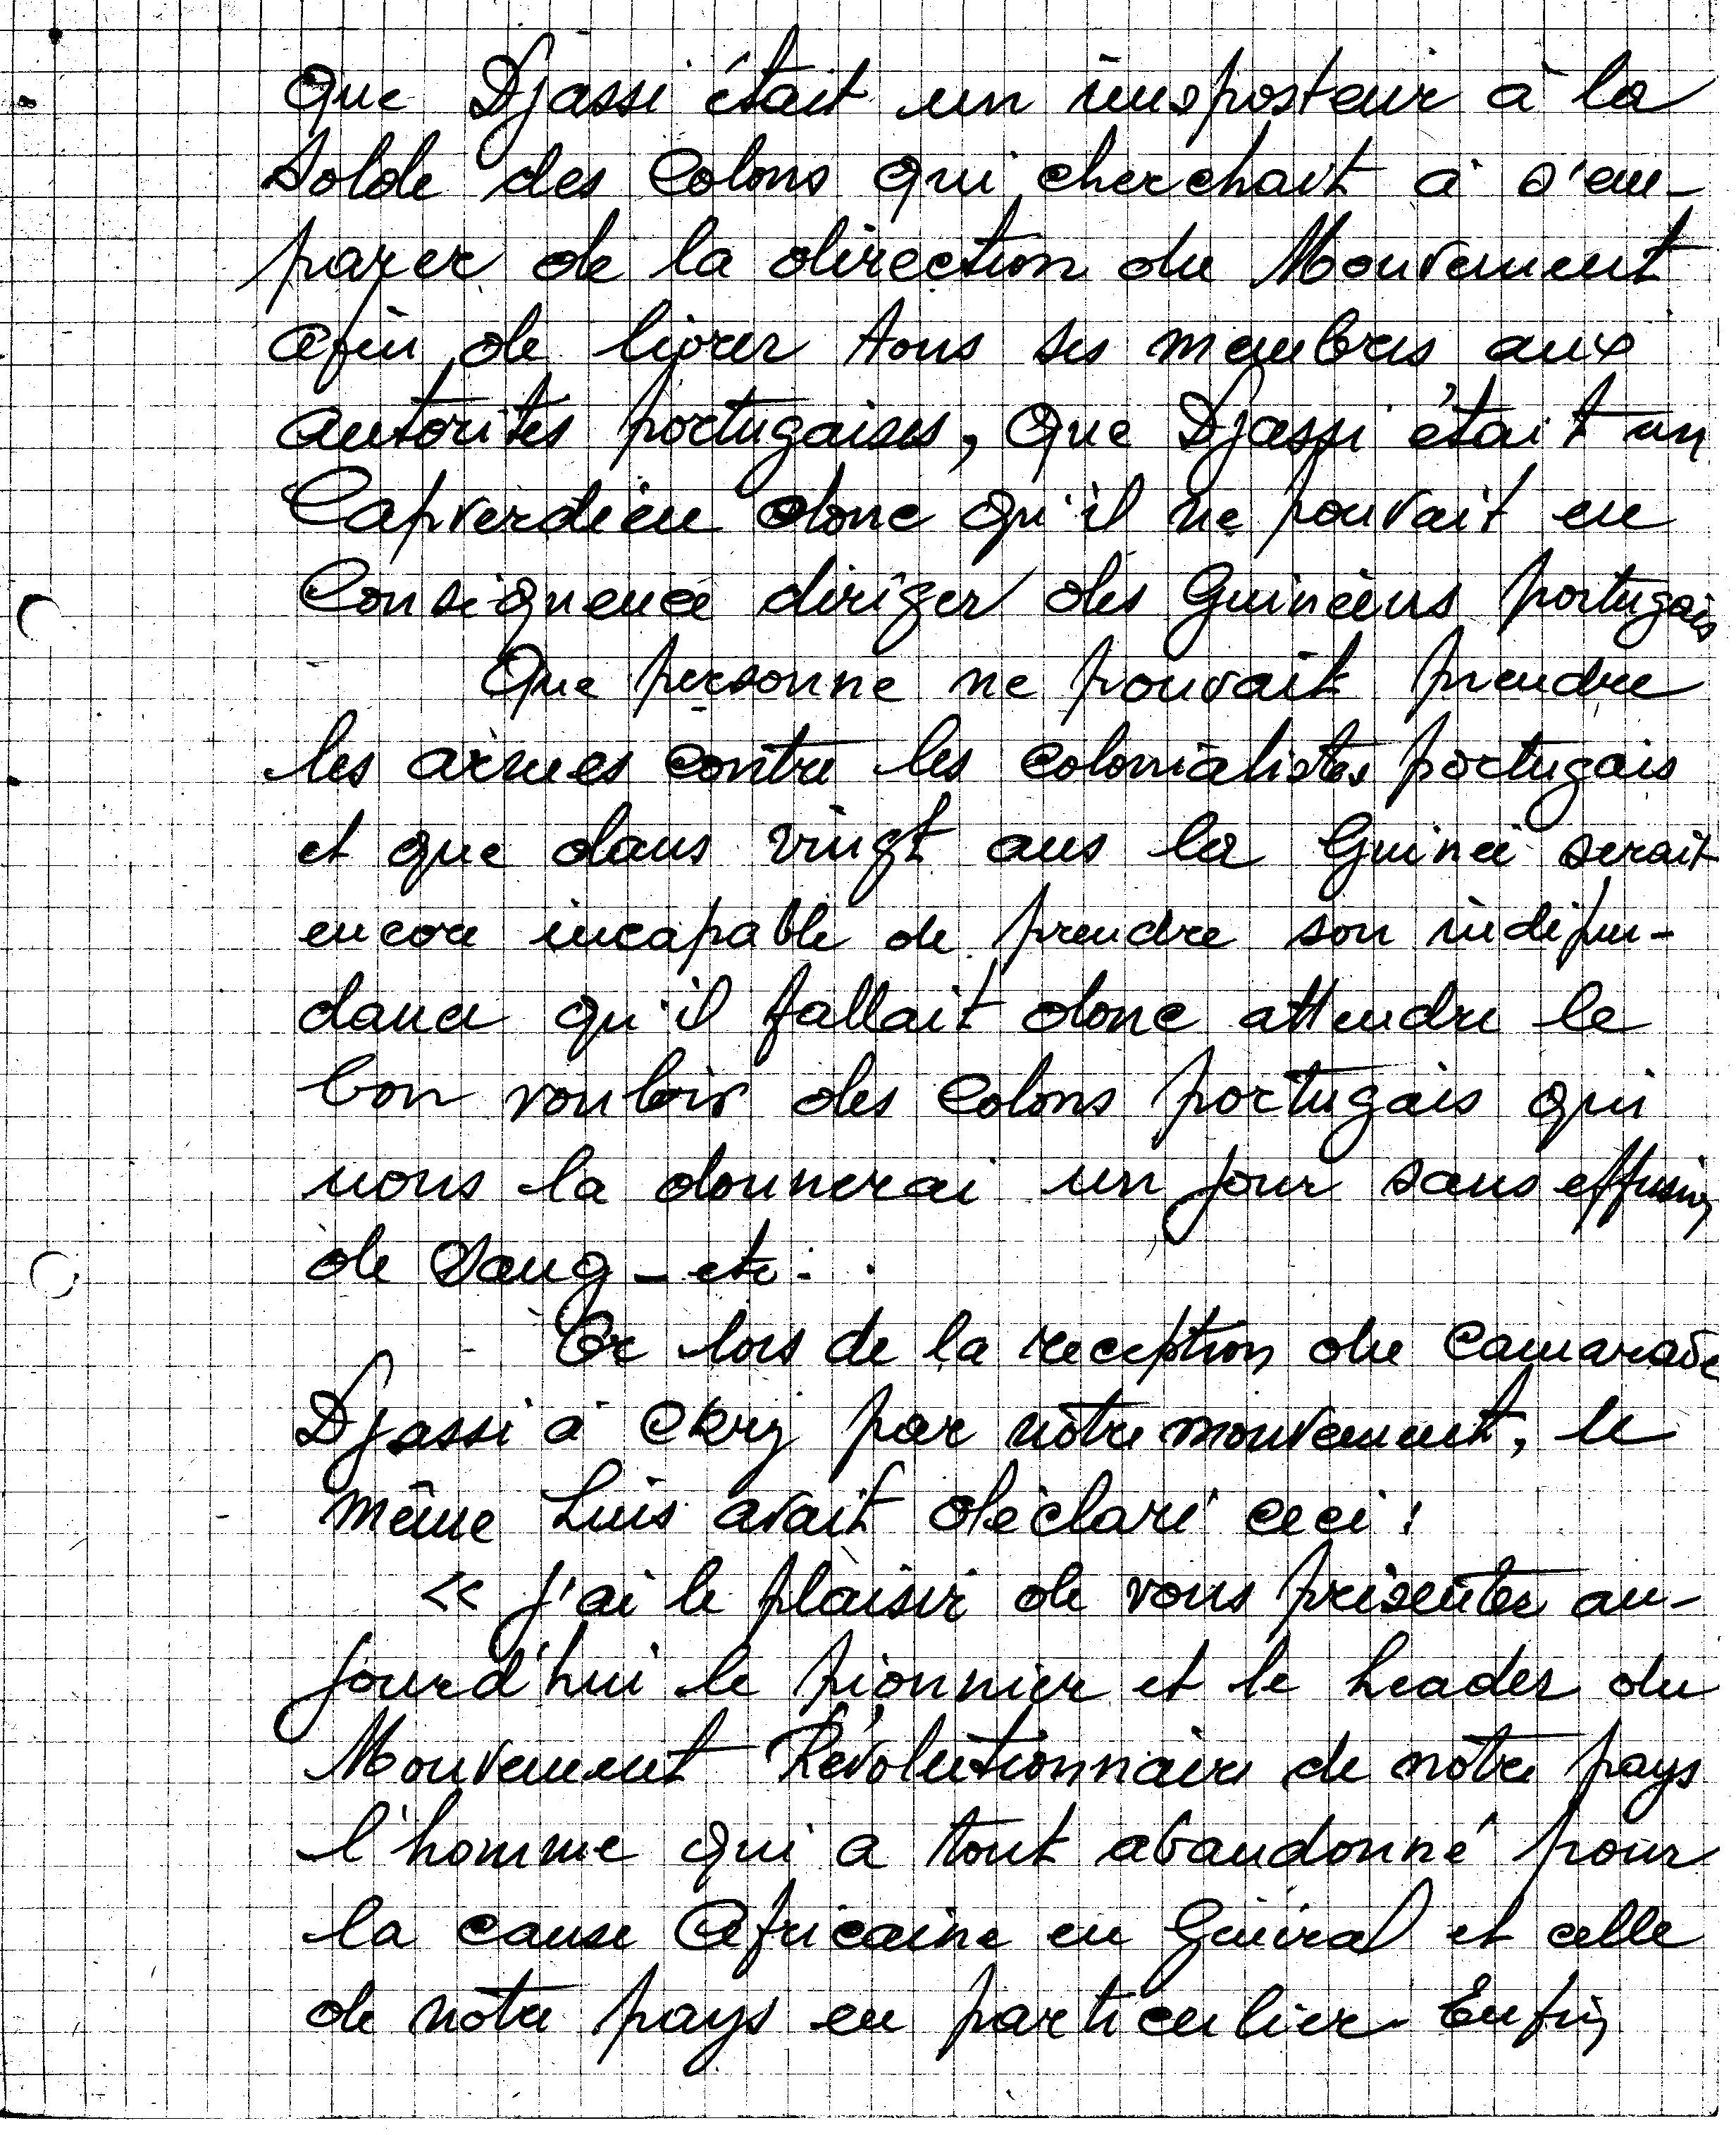 que Djassi était un imsposteur à la
solde des Colons qui cherchait à s'em-
parer de la direction du Mouvement
afin de livrer tous ses membres aux
autorités portugaises, que Djassi était un
Capverdien donc qu'il ne pouvait en
Consignence diriger des Guinéens portugais
Que personne ne pouvait prendre
les armes contre les colonialistes portugais
et que dans vingt ans la Guinée serait
encore incapable de prendre son indépen-
dance qu'il fallait donc attendre le
bon vouloir des Colons portugais qui
nous la donnerai un jour sans effusion
de Sang - etc.
Or lors de la réception du Camarade
Djassi à CKry par nôtre mouvement, le
même Luis avait déclaré ceci :
<< j'ai le plaisir de vous présenter au-
jourd'hui le pionnier et le Leader du
Mouvement Révolutionnaire de nôtre pays
l'homme qui a tout abandonné pour
la cause Africaine en Général et celle
de nôtre pays en particulier. Enfin